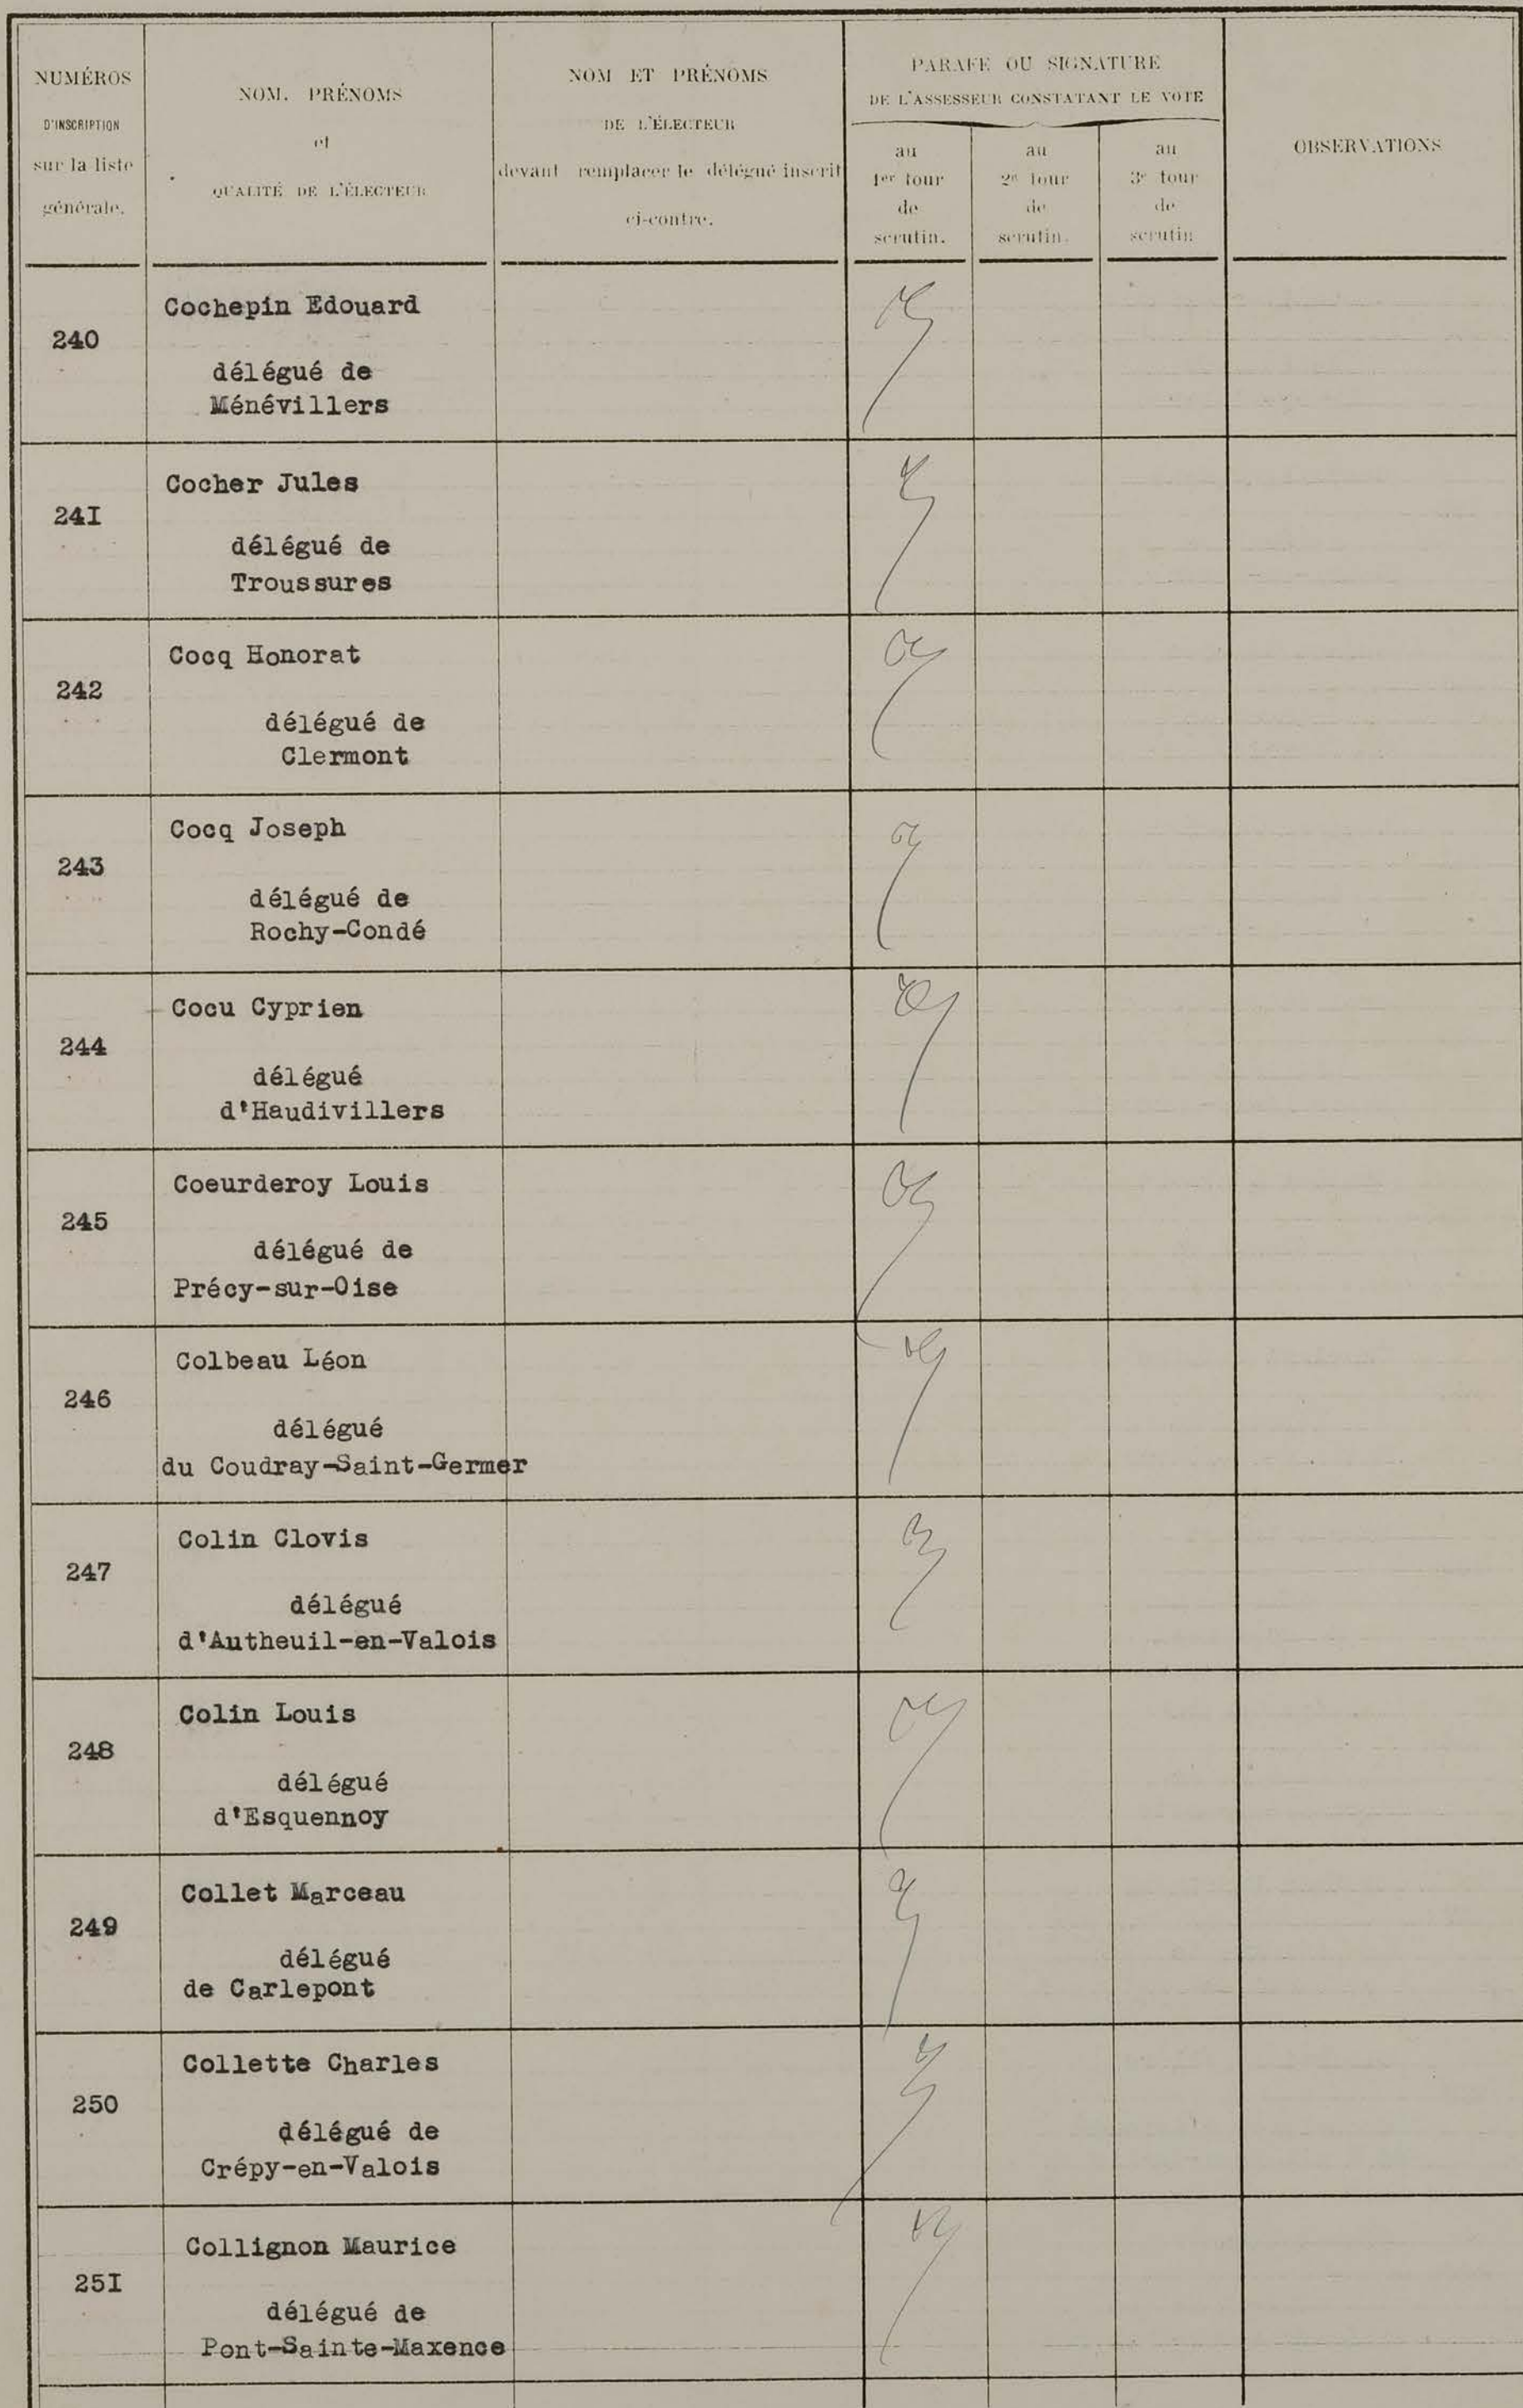 NUMÉROS
D'INSCRIPTION
sur la liste
générale.
NOM. PRÉNOMS
et
QUALITÉ DE L'ÉLECTEUR
NOM ET PRÉNOMS
DE L'ÉLECTEUR
devant remplacer le délégué inscrit
ci-contre.
PARAFE OU SIGNATURE
DE L'ASSESSEUR CONSTATANT LE VOTE
au
1er tour
de
scrutin.
au
2e tour
de
scrutin.
au
3e tour
de
scrutin
OBSERVATIONS
240
Cochepin Edouard
délégué de
Ménévillers
24I
Cocher Jules
délégué de
Troussures
242
Cocq Honorat
délégué de
Clermont
243
Cocq Joseph
délégué de
Rochy-Condé
244
Cocu Cyprien
délégué
d'Haudivillers
245
Coeurderoy Louis
délégué de
Précy-sur-Oise
246
Colbeau Léon
délégué
du Coudray-Saint-Germer
247
Colin Clovis
délégué
d'Autheuil-en-Valois
248
Colin Louis
délégué
d'Esquennoy
249
Collet Marceau
délégué
de Carlepont
250
Collette Charles
délégué de
Crépy-en-Valois
25I
Collignon Maurice
délégué de
Pont-Sainte-Maxence